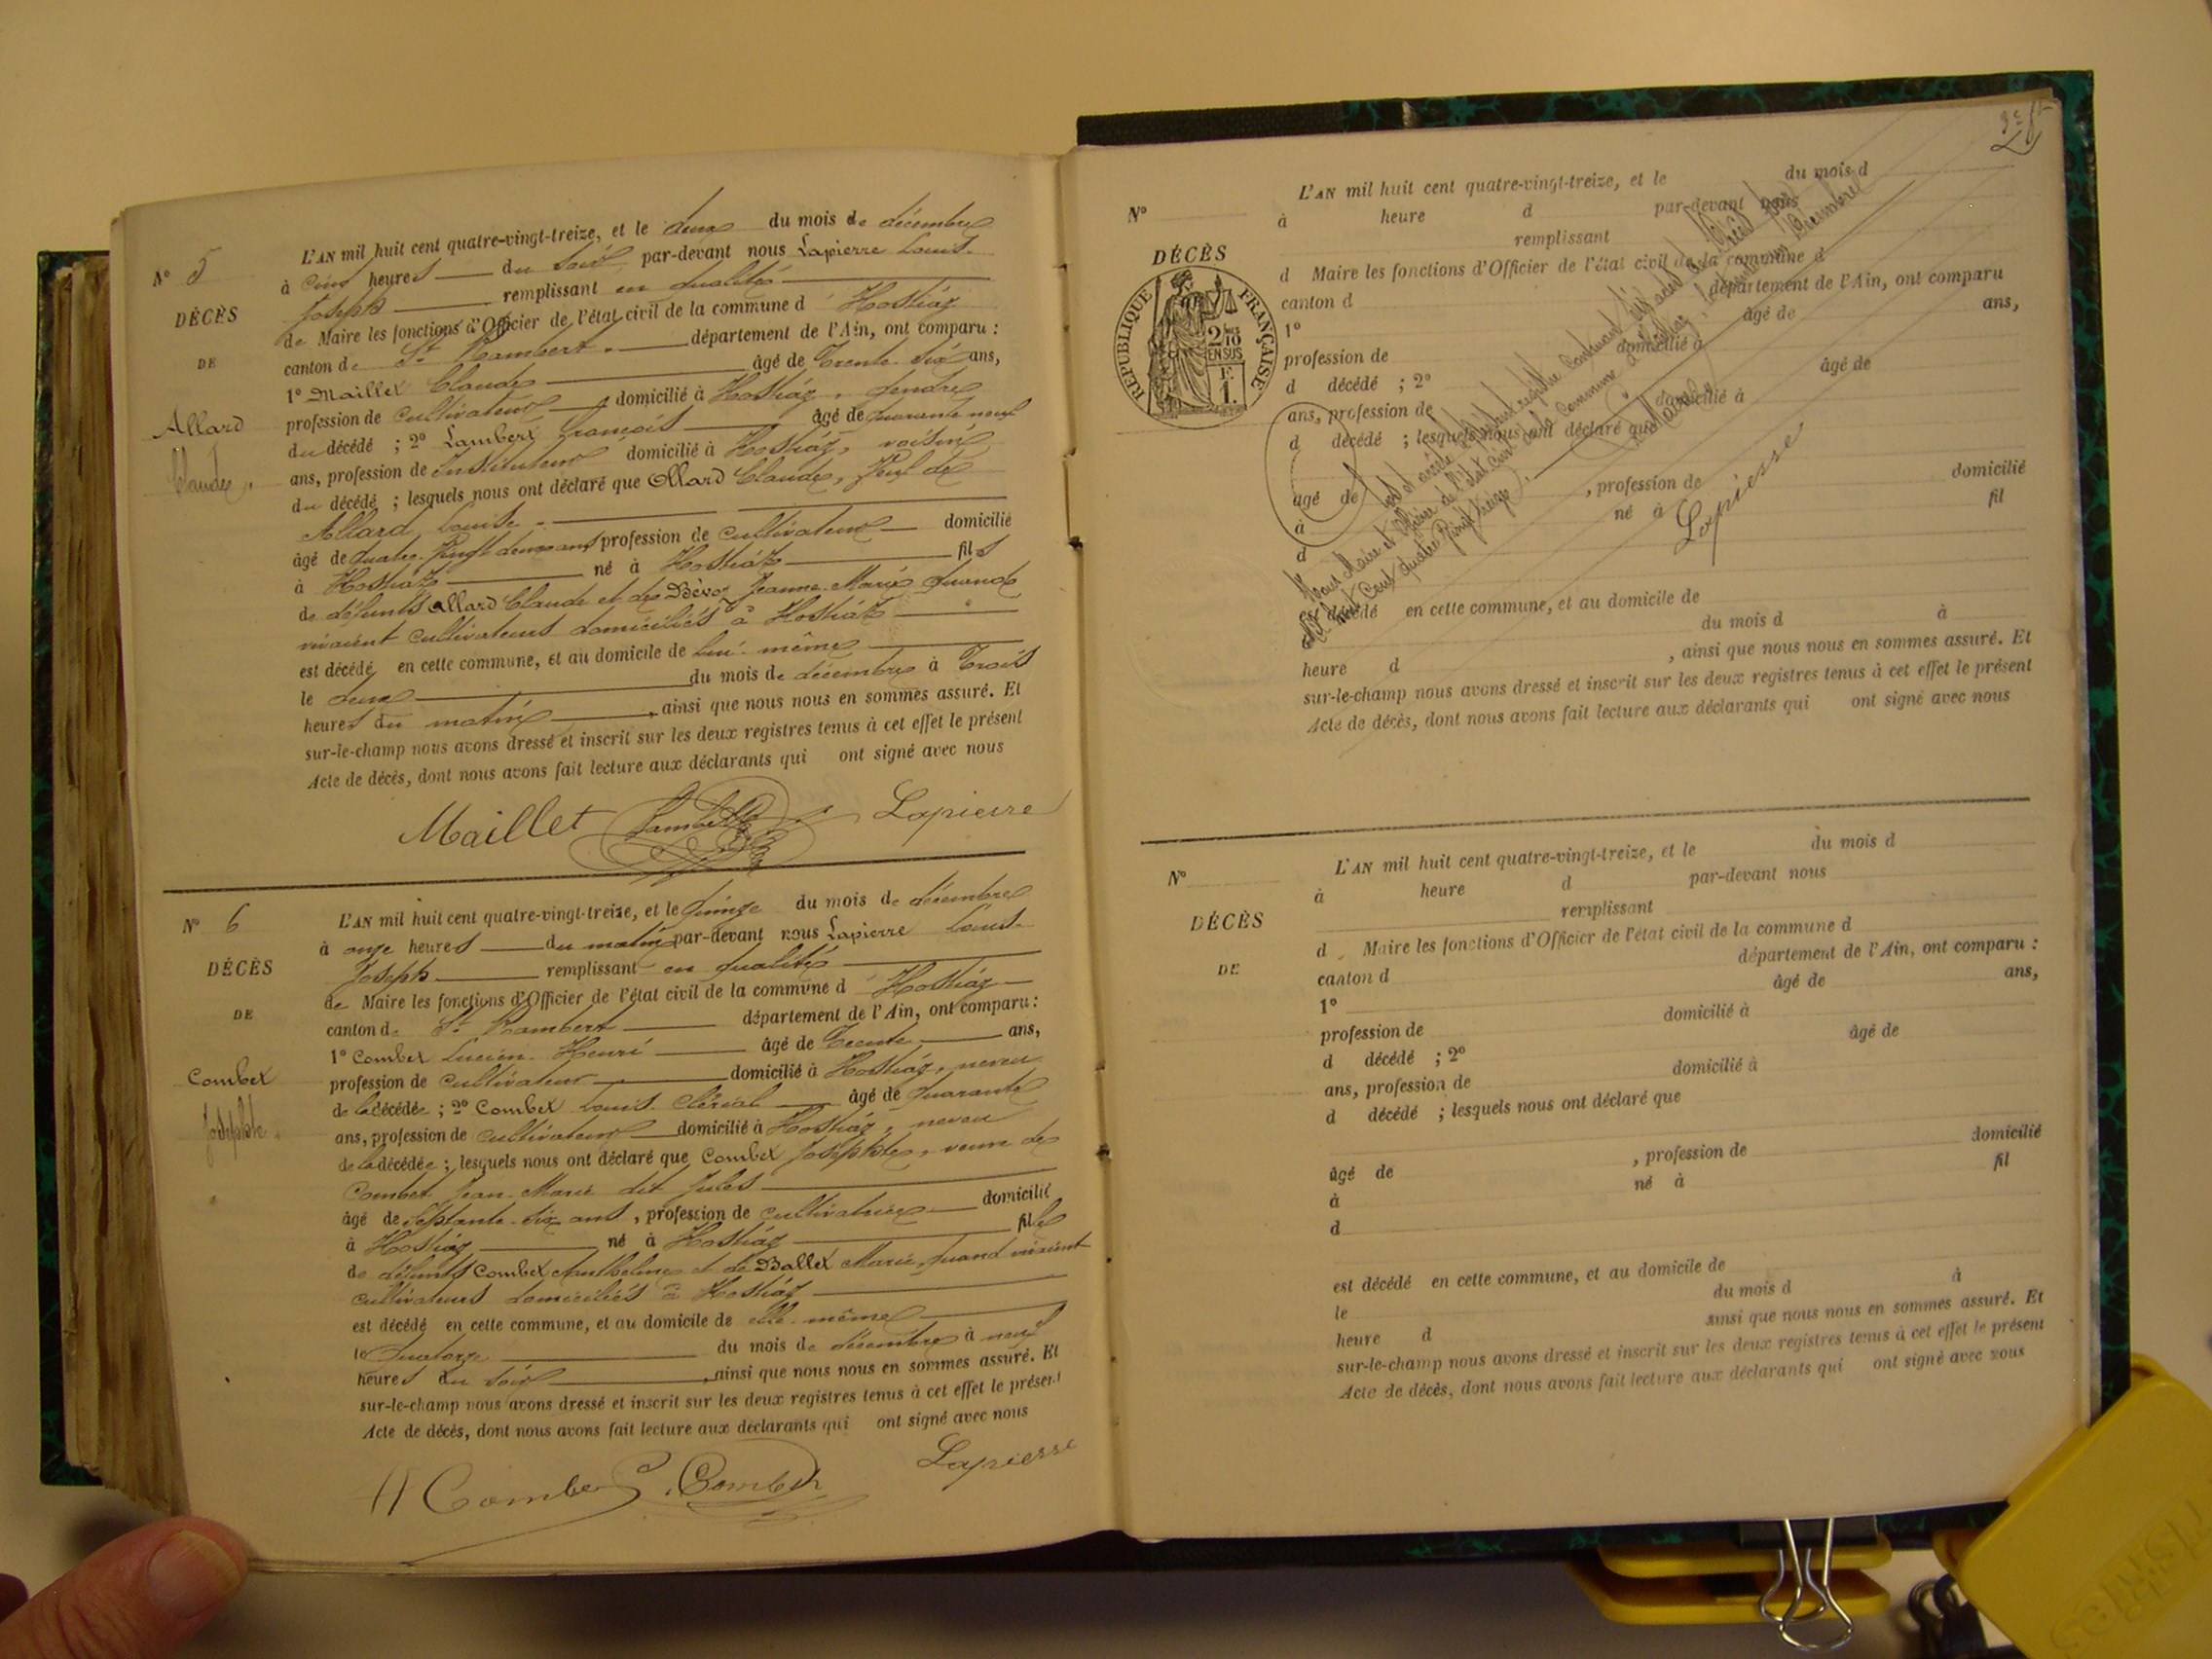 N° 5
DÉCÈS
DE
Allard
Claude.
L'AN mil huit cent quatre-vingt-treize, et le deux du mois de décembre
à cinq heures du soir par-devant nous Lapierre Louis-
Joseph remplissant en qualité
de Maire les fonctions d'Officier de l'état civil de la commune d'Hostiaz
canton de St Rambert. département de l'Ain, ont comparu :
1° Maillet Claude âgé de Trente-six ans,
profession de cultivateur domicilié à Hostiaz, gendre
du décédé ; 2° Lambert François âgé de quarante neuf
ans, profession de Instituteur domicilié à Hostiaz, voisin
du décédé ; lesquels nous ont déclaré que Allard Claude, veuf de
Allard Louise.
âgé de quatre-vingt deux ans profession de cultivateur domicilié
à Hostiaz né à Hostiaz fils
de défunts Allard Claude et de Jeanne-Marie quand
vivaient cultivateurs domiciliés à Hostiaz
est décédé en cette commune, et au domicile de lui-même
le deux du mois de décembre à Trois
heures du matin, ainsi que nous nous en sommes assuré. Et
sur-le-champ nous avons dressé et inscrit sur les deux registres tenus à cet effet le présent
Acte de décès, dont nous avons fait lecture aux déclarants qui ont signé avec nous
Maillet Lambert Lapierre
N° 6
DÉCÈS
DE
Combet
Josephte.
L'AN mil huit cent quatre-vingt-treize, et le quinze du mois de décembre
à onze heures du matin par-devant nous Lapierre Louis-
Joseph remplissant en qualité
de Maire les fonctions d'Officier de l'état civil de la commune d'Hostiaz
canton de St Rambert département de l'Ain, ont comparu :
1° Combet Lucien-Henri âgé de Trente ans,
profession de cultivateur domicilié à Hostiaz, neveu
de la décédée ; 2° Combet Louis âgé de quarante
ans, profession de cultivateur domicilié à Hostiaz, neveu
de la décédée ; lesquels nous ont déclaré que Combet Josephte, veuve de
Combet Jean-Marie dit Jules
âgé de septante-six ans, profession de cultivatrice domicilié
à Hostiaz né à Hostiaz fille
de défunts Combet Anthelme et de Ballet Marie, quand vivaient
cultivateurs domiciliés à Hostiaz
est décédé en cette commune, et au domicile de elle-même
le quatorze du mois de décembre à neuf
heures du soir, ainsi que nous nous en sommes assuré. Et
sur-le-champ nous avons dressé et inscrit sur les deux registres tenus à cet effet le présent
Acte de décès, dont nous avons fait lecture aux déclarants qui ont signé avec nous
H Combet Combet Lapierre
N°
DÉCÈS
RÉPUBLIQUE FRANÇAISE
2/10
EN SUS
F.
1.
L'AN mil huit cent quatre-vingt-treize, et le du mois d
à heure d par-devant nous
remplissant
d Maire les fonctions d'Officier de l'état civil de la commune d
canton d département de l'Ain, ont comparu
1° âgé de ans,
profession de domicilié à
d décédé ; 2° âgé de
ans, profession de domicilié à
d décédé ; lesquels nous ont déclaré que
âgé de , profession de domicilié
à né à fil
d
est décédé en cette commune, et au domicile de
du mois d à
heure d , ainsi que nous nous en sommes assuré. Et
sur-le-champ nous avons dressé et inscrit sur les deux registres tenus à cet effet le présent
Acte de décès, dont nous avons fait lecture aux déclarants qui ont signé avec nous
Clos et arrêté le présent registre contenant six actes de Décès par
Nous Maire et officier de l'état civil de la commune d'Hostiaz, le trente un Décembre
mil huit Cent quatre Vingt treize.
Le Maire
Lapierre
N°
DÉCÈS
DE
L'AN mil huit cent quatre-vingt-treize, et le du mois d
à heure d par-devant nous
remplissant
d Maire les fonctions d'Officier de l'état civil de la commune d
canton d département de l'Ain, ont comparu :
1° âgé de ans,
profession de domicilié à
d décédé ; 2° âgé de
ans, profession de domicilié à
d décédé ; lesquels nous ont déclaré que
âgé de , profession de domicilié
à né à fil
d
est décédé en cette commune, et au domicile de
le du mois d à
heure d ainsi que nous nous en sommes assuré. Et
sur-le-champ nous avons dressé et inscrit sur les deux registres tenus à cet effet le présent
Acte de décès, dont nous avons fait lecture aux déclarants qui ont signé avec nous